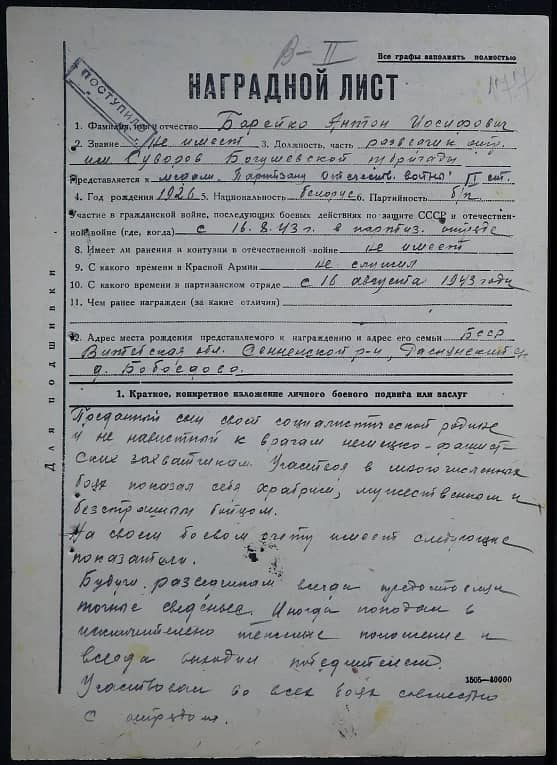 В-II
Все графы заполнять полностью
ПОСТУПИЛО
НАГРАДНОЙ ЛИСТ
1. Фамилия, имя и отчество Борейко Антон Иосифович
2. Звание Не имеет 3. Должность, часть разведчик отр.
им. Суворов Богушевской бригады
Представляется к медали „Партизану Отечеств. войны" II ст.
4. Год рождения 1926 5. Национальность белорус 6. Партийность б/п
Участие в гражданской войне, последующих боевых действиях по защите СССР и отечествен-
ной войне (где, когда) с 16.8.43 г. в партиз. отряде
8. Имеет ли ранения и контузии в отечественной войне не имеет
9. С какого времени в Красной Армии не служил
10. С какого времени в партизанском отряде с 16 августа 1943 года
11. Чем ранее награжден (за какие отличия)
12. Адрес места рождения представляемого к награждению и адрес его семьи БССР
Витебская обл. Сенненский р-н,
д.
Для подшивки
1. Краткое, конкретное изложение личного боевого подвига или заслуг
Преданный сын своей социалистической родине
и не навистный к врагам немецко-фашист-
ских захватчикам. Участвуя в многочисленных
боях показал себя храбрым, мужественном и
безстрашным бойцом.
На своем боевом счету имеет следующие
показатели.
Будучи разведчикам всегда
точные сведенье. Иногда попадал в
исключительно тяжелые положение и
всегда выходил победителем.
1505—40000
Участвовал во всех боях совместно
с отрядом.